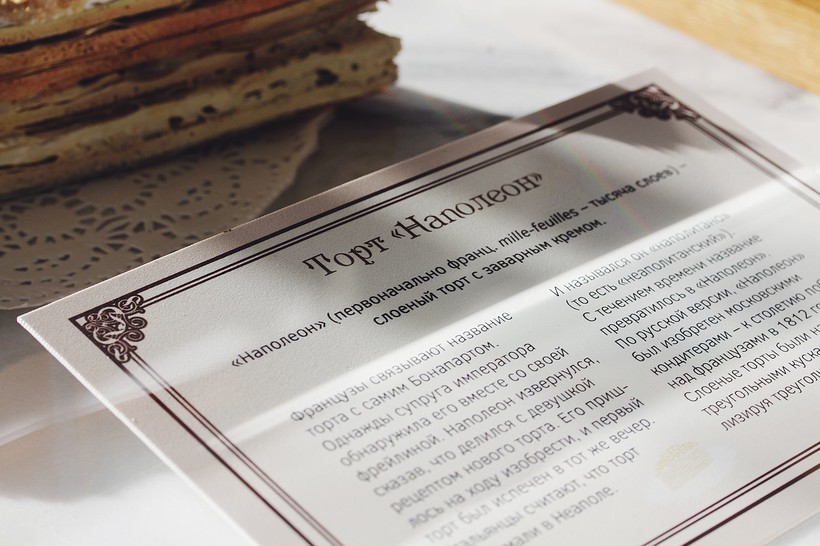 Торт «Наполеон»
«Наполеон» (первоначально франц. mille-feuilles – тысяча слоев) –
слоеный торт с заварным кремом.
Французы связывают название
торта с самим Бонапартом.
Однажды супруга императора
обнаружила его вместе со своей
фрейлиной. Наполеон извернулся,
сказав, что делился с девушкой
рецептом нового торта. Его приш-
лось на ходу изобрести, и первый
торт был испечен в тот же вечер.
считают, что торт
в Неаполе.
И назывался он «наполитано»
(то есть «неаполитанский»).
С течением времени название
превратилось в «Наполеон».
По русской версии, «Наполеон»
был изобретен московскими
кондитерами – к столетию
над французами в 1812
Слоеные торты были
треугольными